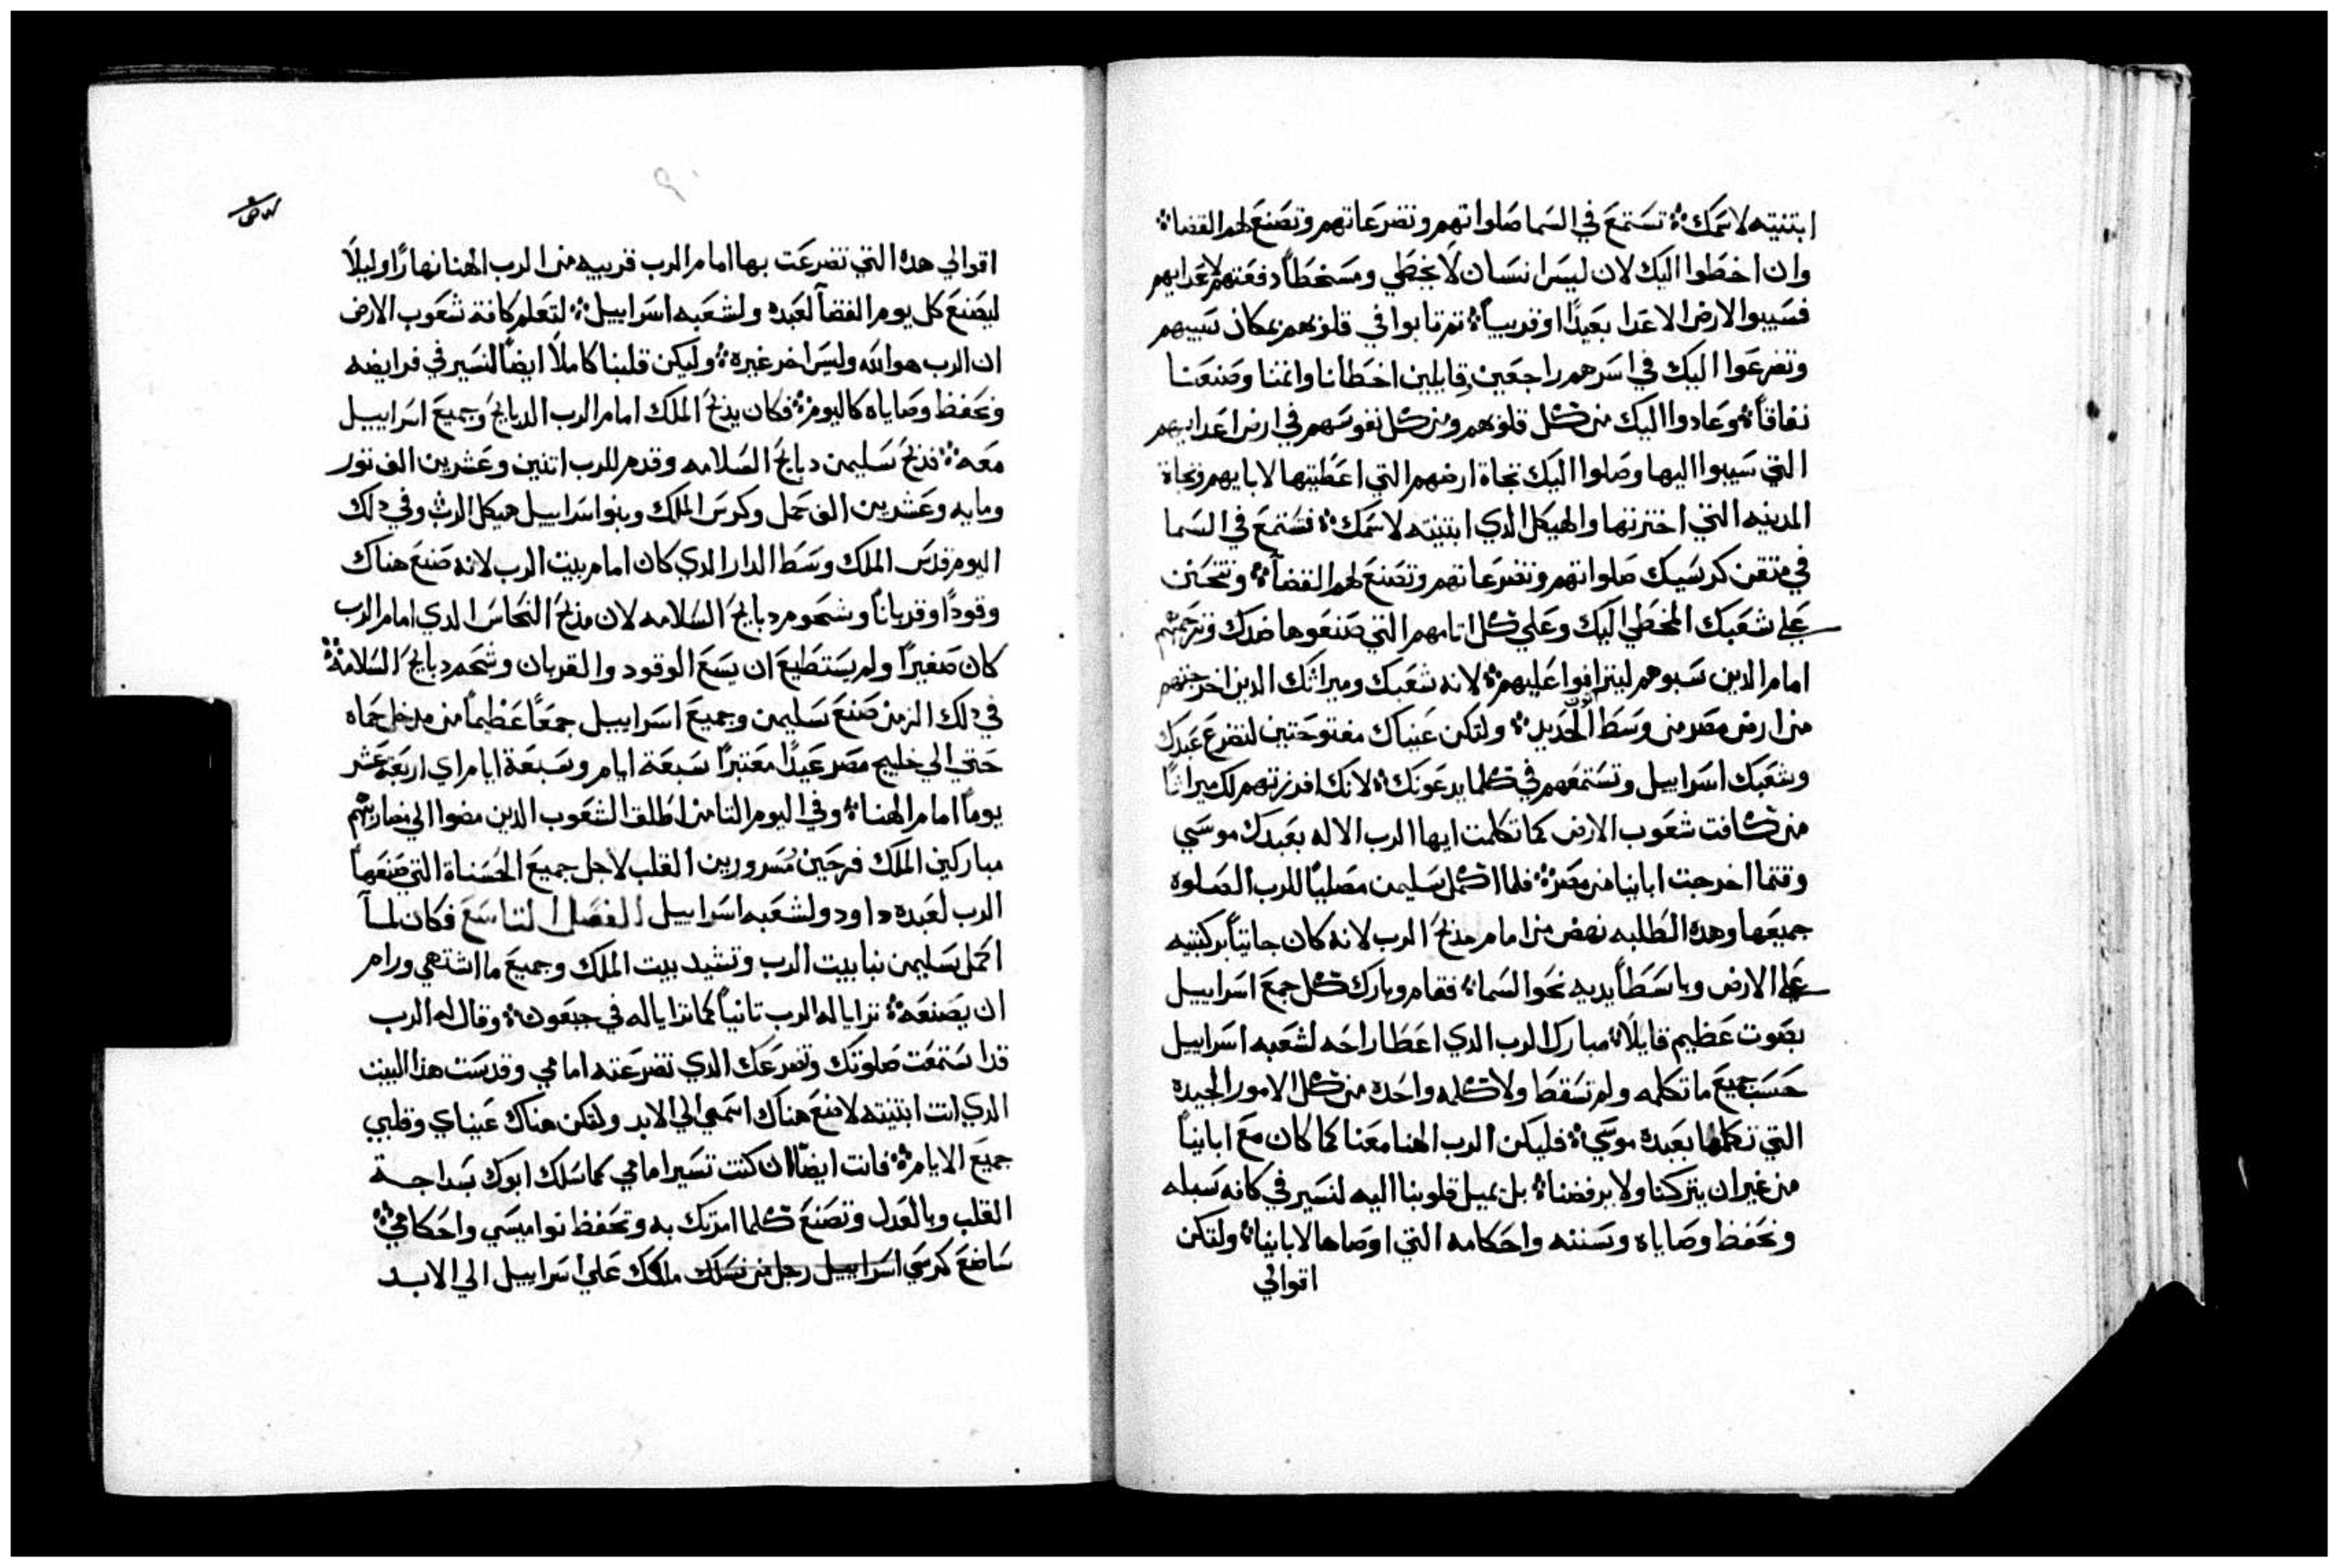 ابتنيته لاسمك تستمع في السما صلواتهم وتضرعاتهم وتصنع لهم القضا
وان اخطوا اليك لان ليس انسان لا يخطي ومسخطاً دفعتهم لاعدايهم
فسيبوا لارض الاعدا بعيداً او قريباً ثم تابوا في قلوبهم بمكان سبيهم
وتضرعوا اليك في اسرهم راجعين قايلين اخطانا واثمنا وصنعنا
نفاقاً وعادوا اليك من كل قلوبهم ومن كل نفوسهم في ارض اعدايهم
التي سيبوا اليها وصلوا اليك تجاة ارضهم التي اعطيتها لابايهم وتجاة
المدينه التي اخترتها والهيكل الدي ابتنيته لاسمك فتستمع في السما
في متقن كرسيك صلواتهم وتضرعاتهم وتصنع لهم القضآ وتتحنن
علي شعبك المخطي اليك وعلي كل اتامهم التي صنعوها ضدك وترحمهم
امام الدين سبوهم ليترافوا عليهم لانه شعبك وميراثك الدين اخرجتهم
من ارض مصر من وسط الحديد ولتكن عيناك مفتوحتين لتضرع عبدك
وشعبك اسراييل وتستمعهم في كلما يدعونك لانك افرزتهم لك ميراثاً
من كافت شعوب الارض كما تكلمت ايها الرب الاله بعبدك موسي
وقتما اخرجت اباينا من مصر فلما اكمل سليمن مصلياً للرب الصلوه
جميعها وهده الطلبه نهض من امام مذبح الرب لانه كان جاثياً بركبتيه
علي الارض وباسطاً يديه نحو السما فقام وبارك كل جمع اسراييل
بصوت عظيم قايلاً مبارك الرب الدي اعطا راحه لشعبه اسراييل
حسب جميع ما تكلمه ولم تسقط ولا كلمه واحده من كل الامور الجيده
التي تكلمها بعبده موسي فليكن الرب الهنا معنا كما كان مع اباينا
من غير ان يتركنا ولا يرفضنا بل يميل قلوبنا اليه لنسير في كافه سبله
ونحفظ وصاياه وسننه واحكامه التي اوصاها لاباينا ولتكن
اقوالي
اقوالي هده التي تضرعت بها امام الرب قريبه من الرب الهنا نهاراً وليلاً
ليصنع كل يوم القضآ لعبده ولشعبه اسراييل لتعلم كافة شعوب الارض
ان الرب هو الله وليس اخر غيره وليكن قلبنا كاملاً ايضاً لنسير في فرايضه
ونحفظ وصاياه كاليوم فكان يذبح الملك امام الرب الدبايح وجميع اسراييل
معه فذبح سليمن دبايح السلامه وقدم للرب اتنين وعشرين الف تور
ومايه وعشرين الف حمل وكرس الملك وبنوا سراييل هيكل الرب وفي دلك
اليوم قدس الملك وسط الدار الدي كان امام بيت الرب لانه صنع هناك
وقوداً وقرباناً وشحوم دبايح السلامه لان مذبح النحاس الدي امام الرب
كان صغيراً ولم يستطيع ان يسع الوقود والقربان وشحم دبايح السلامه
في دلك الزمن صنع سليمن وجميع اسراييل جمعاً عظيماً من مدخل حماه
حتي الي خليج مصر عيداً معتبراً سبعة ايام وسبعة ايام اي اربعة عشر
يوماً امام الهنا وفي اليوم التامن اطلق الشعوب الدين مضوا الي مضاربهم
مباركين الملك فرحين مسرورين القلب لاجل جميع الحسناة التي صنعها
الرب لعبده داود ولشعبه اسراييل الفصل التاسع فكان لمآ
اكمل سليمن نبا بيت الرب وتشيد بيت الملك وجميع ما اشتهي ورام
ان يصنعه ترايا له الرب تانياً كما ترايا له في جبعون وقال له الرب
قد استمعت صلوتك وتضرعك الدي تضرعته امامي وقدست هذا البيت
الدي انت ابتنيته لاضع هناك اسمي الي الابد ولتكن هناك عيناي وقلبي
جميع الايام فانت ايضاً ان كنت تسير امامي كما سلك ابوك بسداجة
القلب وبالعدل وتصنع كلما امرتك به وتحفظ نواميسي واحكامي
ساضع كرسي اسراييل رجل من نسلك ملكك علي اسراييل الي الابد